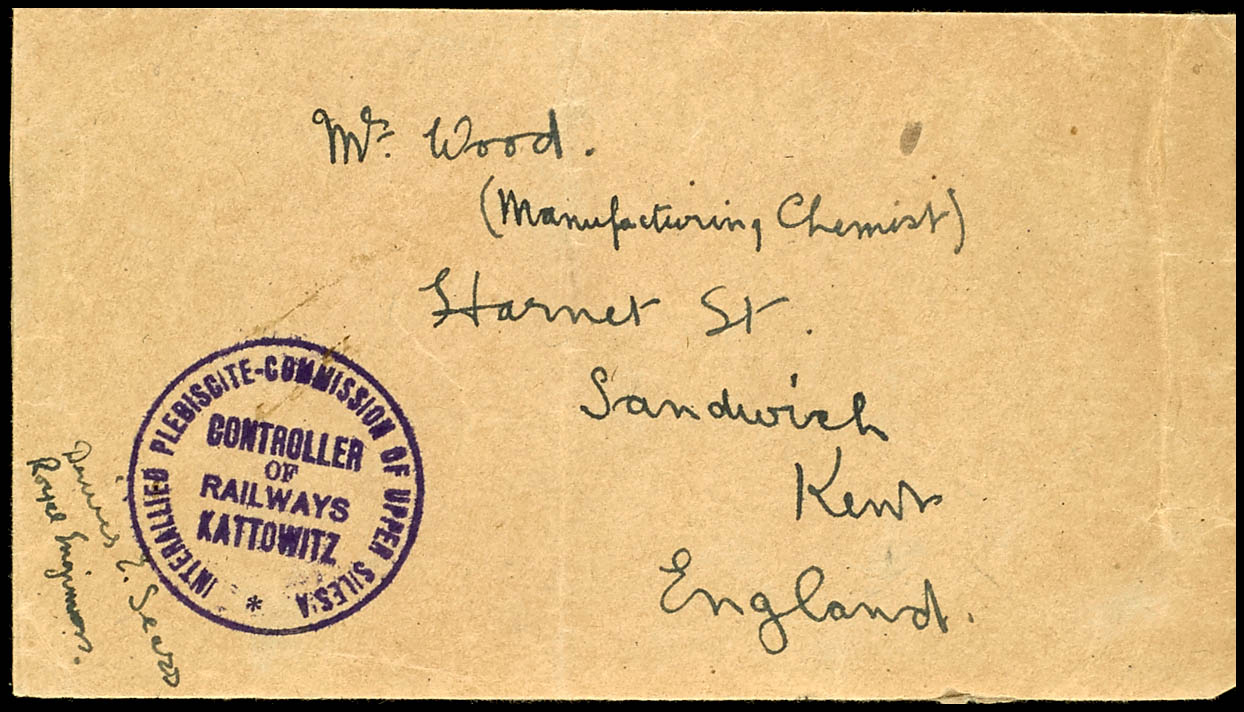 Mr. Wood.
(Manufacturing Chemist)
Harnet St.
Sandwich
Kent
England.
INTERALLIED PLEBISCITE-COMMISSION OF UPPER SILESIA *
CONTROLLER
OF
RAILWAYS
KATTOWITZ
Dennis E.
Royal Engineers.